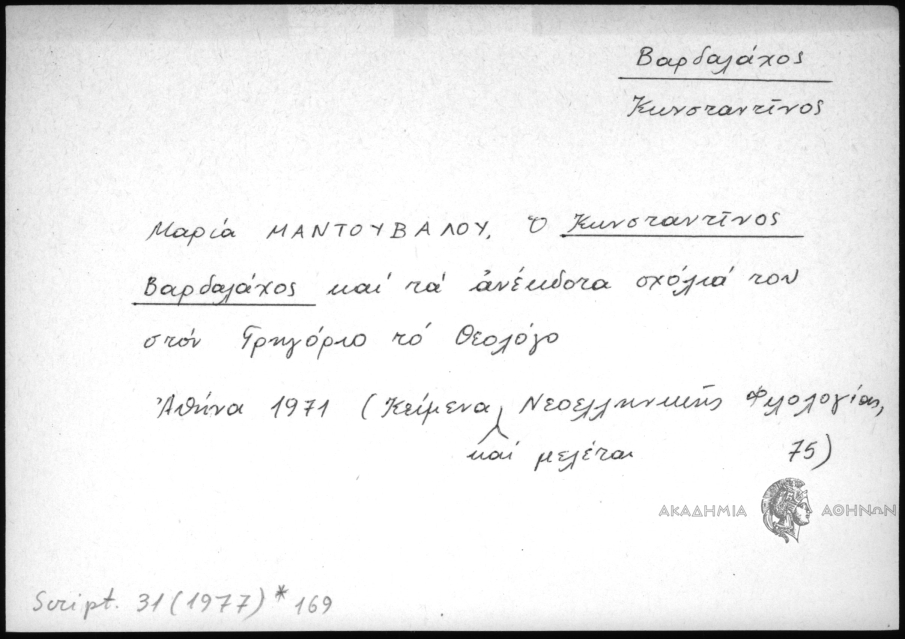 Βαρδαλάχος
Κωνσταντῖνος
Μαρία ΜΑΝΤΟΥΒΑΛΟΥ, Ὁ Κωνσταντῖνος
Βαρδαλάχος καί τά ἀνέκδοτα σχόλιά του
στόν Γρηγόριο τό Θεολόγο
Ἀθήνα 1971 (Κείμενα Νεοελληνικῆς Φιλολογίας,
καί μελέται 75)
ΑΚΑΔΗΜΙΑ ΑΘΗΝΩΝ
Script. 31 (1977) * 169